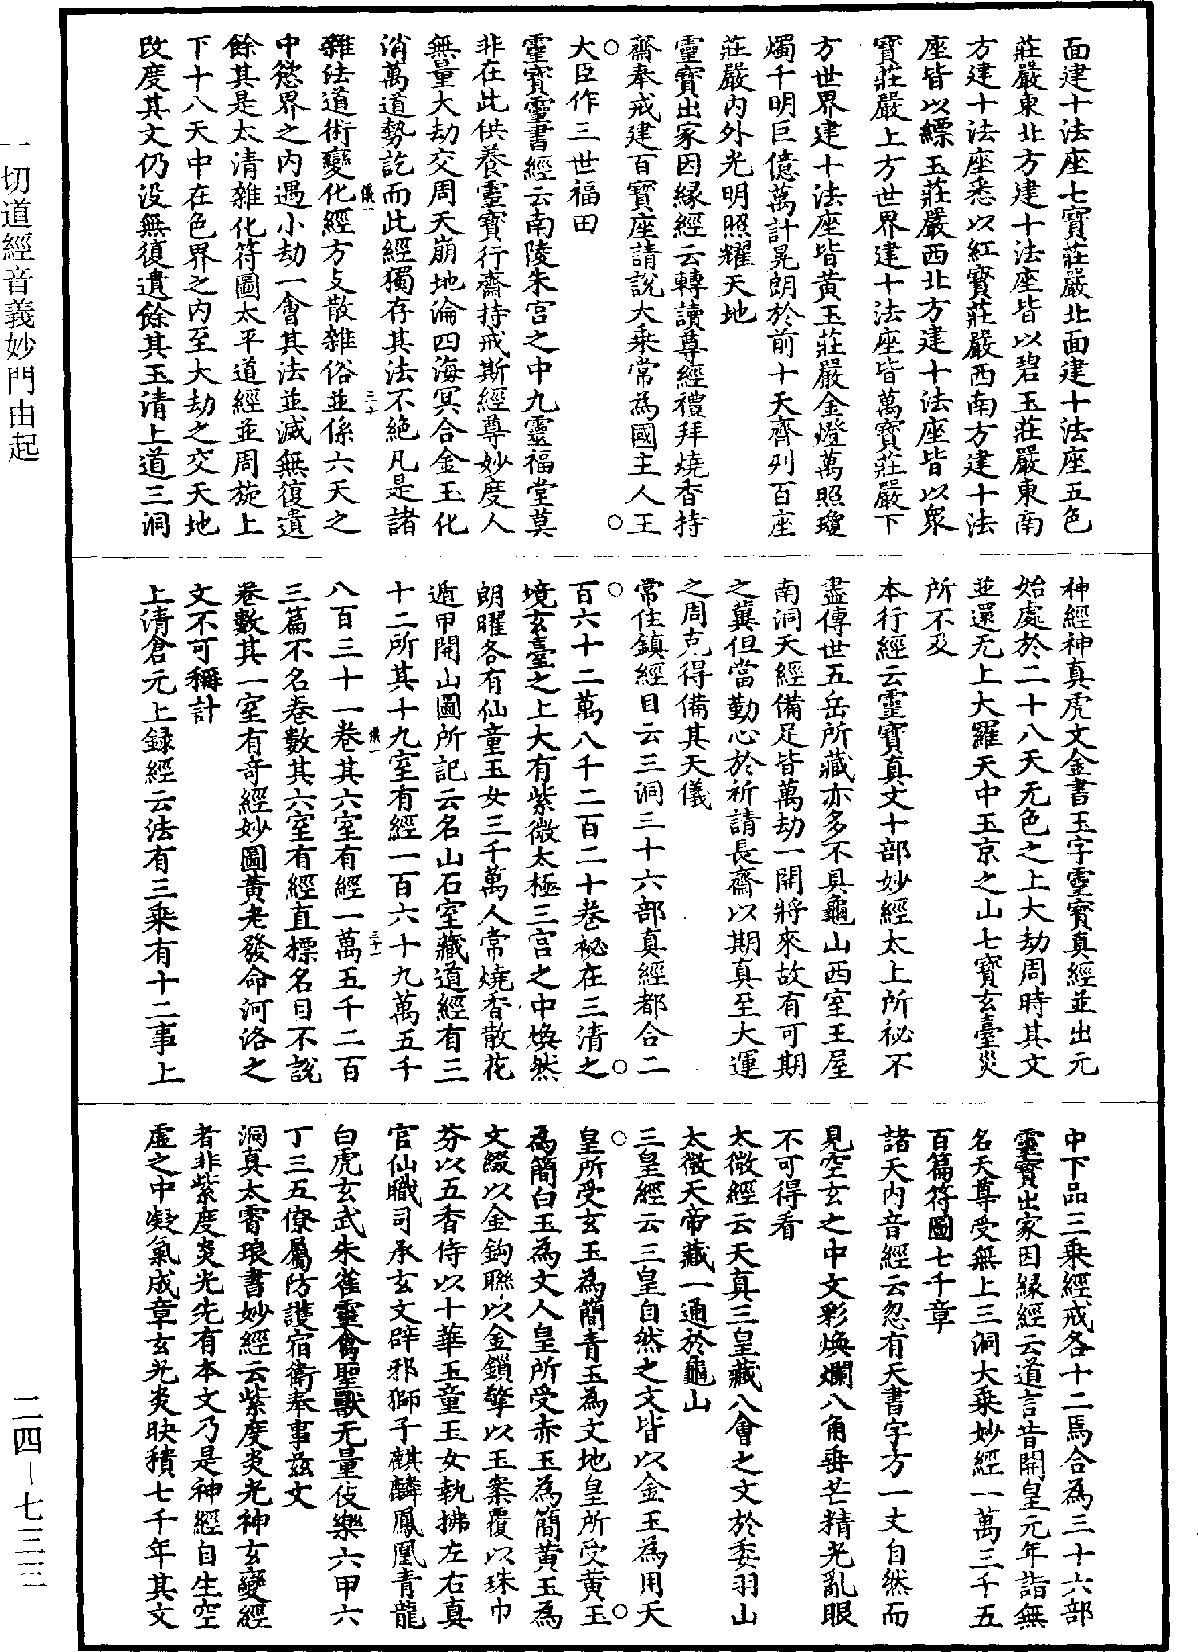 面建十法座七寶莊嚴北面建十法座五色
莊嚴東北方建十法座皆以碧玉莊嚴東南
方建十法座悉以紅寶莊嚴西南方建十法
座皆以縹玉莊嚴西北方建十法座皆以衆
寶莊嚴上方世界建十法座皆萬寶莊嚴下
方世界建十法座皆黃玉莊嚴金燈萬照瓊
燭千明巨億萬計晃朗於前十天齊列百座
莊嚴內外光明照耀天地
靈寶出家因緣經云轉讀尊經禮拜燒香持
齋奉戒建百寶座請說大乘常為國主人王
大臣作三世福田
靈寶靈書經云南陵朱宮之中九靈福堂莫
非在此供養靈寶行齋持戒斯經尊妙度人
無量大劫交周天崩地淪四海冥合金玉化
消萬道勢訖而此經獨存其法不絕凡是諸
雜法道術變化經方支散雜俗並係六天之
儀一
三十
中慾界之內遇小劫一會其法並滅無復遺
餘其是太清雜化符圖太平道經並周旋上
下十八天中在色界之內至大劫之交天地
改度其文仍没無復遺餘其玉清上道三洞
神經神真虎文金書玉字靈寶真經並出元
始處於二十八天无色之上大劫周時其文
並還无上大羅天中玉京之山七寶玄臺災
所不及
本行經云靈寶真文十部妙經太上所祕不
盡傳世五岳所藏亦多不具龜山西室王屋
南洞天經備足皆萬劫一開將來故有可期
之冀但當勤心於祈請長齋以期真至大運
之周克得備其天儀
常住鎮經目云三洞三十六部真經都合二
百六十二萬八千二百二十卷祕在三清之
境玄臺之上大有紫微太極三宮之中煥然
朗曜各有仙童玉女三千萬人常燒香散花
遁甲開山圖所記云名山石室藏道經有三
十二所其十九室有經一百六十九萬五千
儀一
三十一
八百三十一卷其六室有經一萬五千二百
三篇不名卷數其六室有經直標名目不說
卷數其一室有奇經妙圖黃老發命河洛之
文不可稱計
上清倉元上録經云法有三乘有十二事上
中下品三乘經戒各十二焉合為三十六部
靈寶出家因緣經云道言昔開皇元年詣無
名天尊受無上三洞大乘妙經一萬三千五
百篇符圖七千章
諸天內音經云忽有天書字方一丈自然而
見空玄之中文彩煥爛八角垂芒精光亂眼
不可得看
太微經云天真三皇藏八會之文於委羽山
太微天帝藏一通於龜山
三皇經云三皇自然之文皆以金玉為用天
皇所受玄玉為簡青玉為文地皇所受黃玉
為簡白玉為文人皇所受赤玉為簡黄玉為
文綴以金鈎聯以金鎖擎以玉案覆以珠巾
芬以五香侍以十華玉童玉女執拂左右真
官仙職司承玄文辟邪獅子麒麟鳳凰青龍
白虎玄武朱雀靈禽聖獸无量伎樂六甲六
丁三五僚屬防護宿衛奉事兹文
洞真太霄琅書妙經云紫度炎光神玄變經
者非紫度炎光先有本文乃是神經自生空
虛之中凝氣成章玄光炎映積七千年其文
一切道經音義妙門由起
二四-七三二